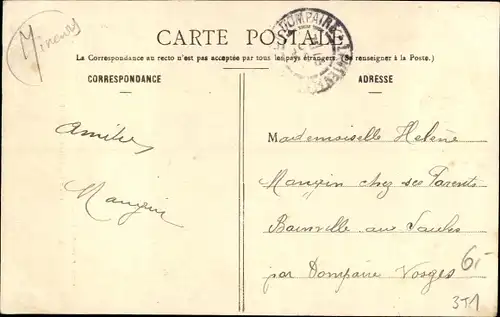 Mineurs
CARTE POSTALE
DOMPAIRE
La Correspondance au recto n'est pas acceptée par tous les pays étrangers. (Se renseigner à la Poste.)
CORRESPONDANCE
ADRESSE
Amitiés
Mangin
Mademoiselle Helène
Mangin chez ses Parents
Bainville aux Saules
par Dompaire Vosges
6,-
351